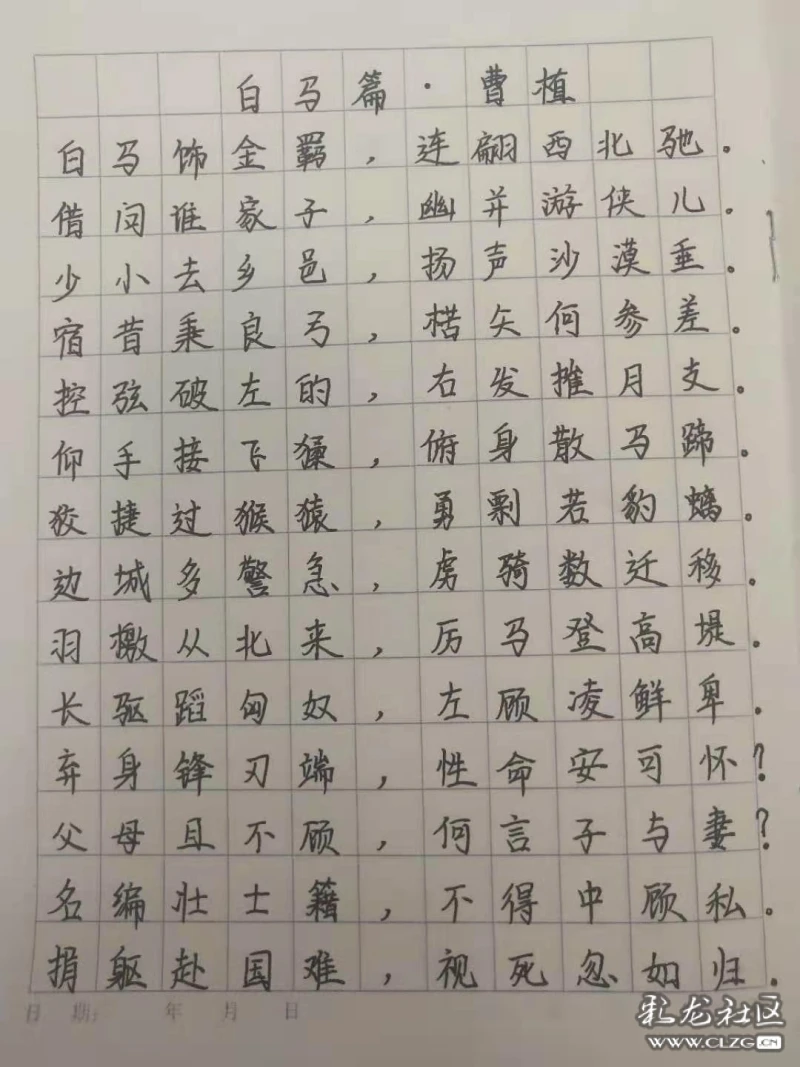 白马篇·曹植
白马饰金羁，连翩西北驰。
借问谁家子，幽并游侠儿。
少小去乡邑，扬声沙漠垂。
宿昔秉良弓，楛矢何参差。
控弦破左的，右发摧月支。
仰手接飞猱，俯身散马蹄。
狡捷过猴猿，勇剽若豹螭。
边城多警急，虏骑数迁移。
羽檄从北来，厉马登高堤。
长驱蹈匈奴，左顾凌鲜卑。
弃身锋刃端，性命安可怀？
父母且不顾，何言子与妻？
名编壮士籍，不得中顾私。
捐躯赴国难，视死忽如归。
日期： 年 月 日
彩龙社区
WWW.CLZG.CN